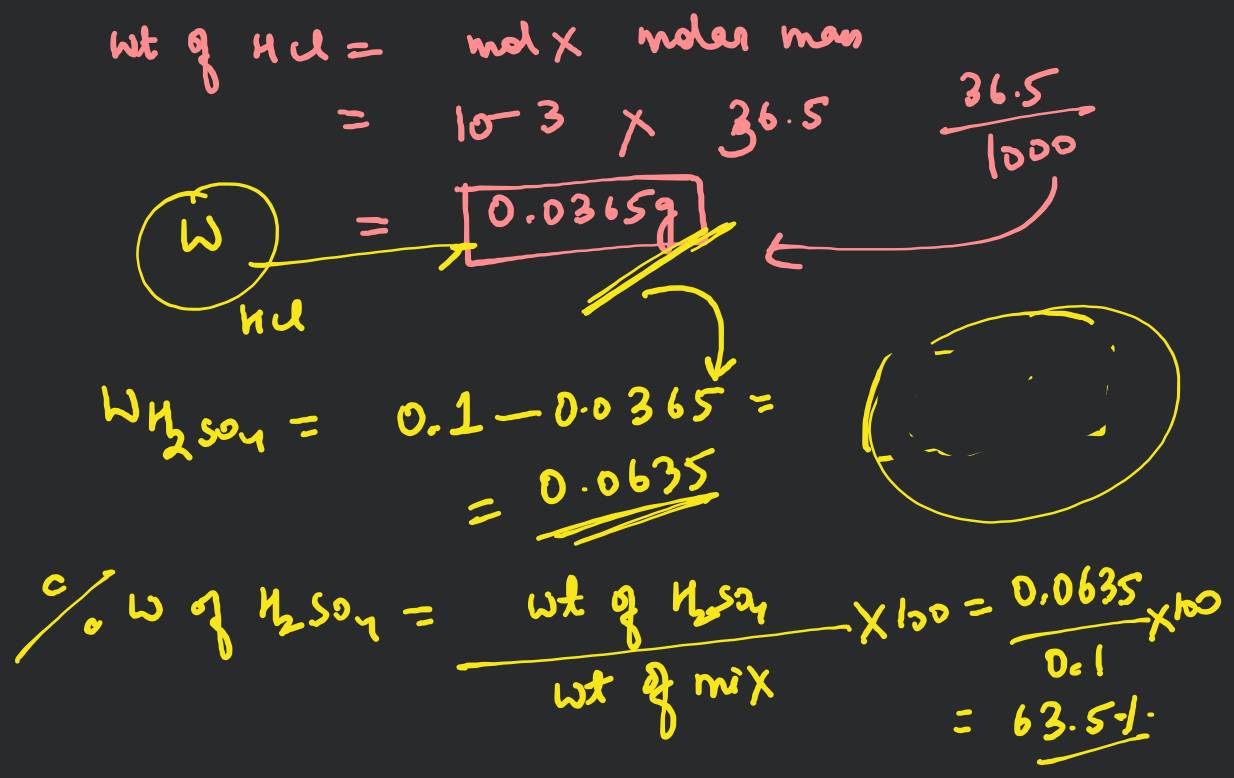 wt of HCl = mol x molar mass
= 10-3 x 36.5
36.5
1000
W
= 0.0365g
HCl
WH2SO4 = 0.1 - 0.0365 =
= 0.0635
% W of H2SO4 = wt of H2SO4 / wt of mix x 100 = 0.0635 / 0.1 x 100
= 63.5%